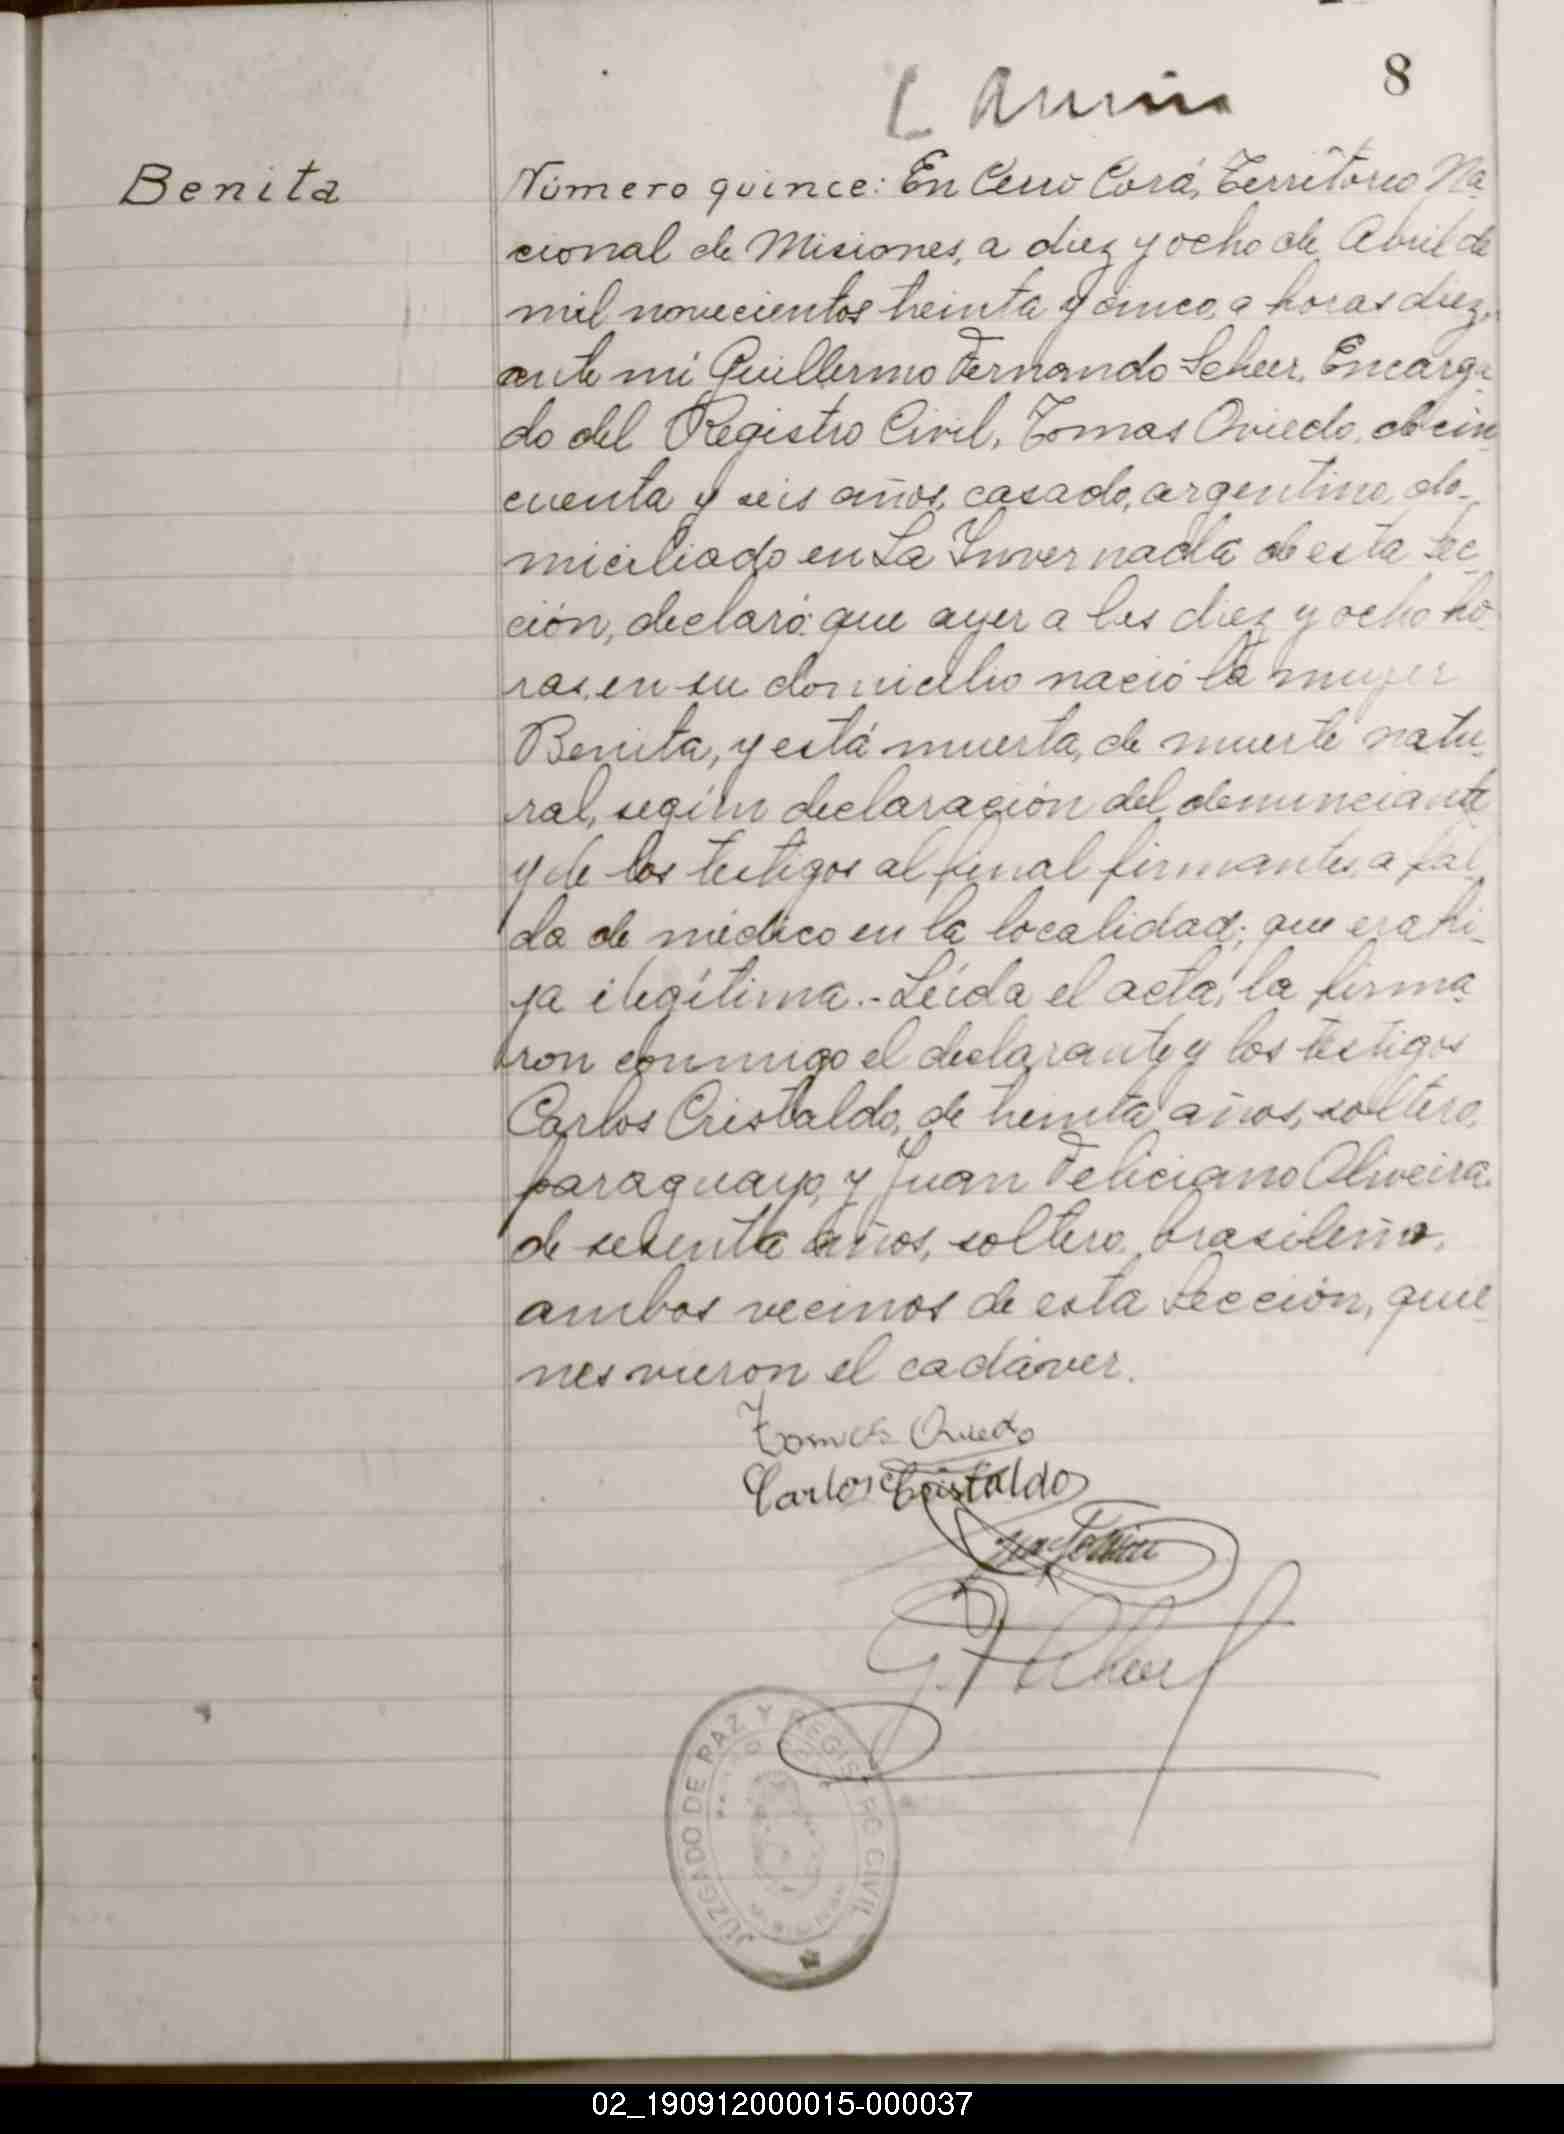 8
Benita
Número quince: En Cerro Corá, Territorio Na-
cional de Misiones, a diez y ocho de Abril de
mil novecientos treinta y cinco, a horas diez,
ante mí Guillermo Fernando Scheer, Encarga-
do del Registro Civil, Tomas Oviedo, de cin-
cuenta y seis años, casado, argentino, do-
miciliado en La Invernada de esta Sec-
ción, declaró: que ayer a las diez y ocho ho-
ras, en su domicilio nació la mujer
Benita, y está muerta, de muerte natu-
ral, según declaración del denunciante
y de los testigos al final firmantes, a fal
da de médico en la localidad; que era hi-
ja ilegítima.- Leída el acta, la firma-
ron conmigo el declarante y los testigos
Carlos Cristaldo, de treinta años, soltero,
paraguayo, y Juan Feliciano Oliveira,
de sesenta años, soltero, brasileño,
ambos vecinos de esta Sección, quie-
nes vieron el cadáver.
Tomas Oviedo
Carlos Cristaldo
G. F. Scheer
JUZGADO DE PAZ Y REGISTRO CIVIL
02_190912000015-000037